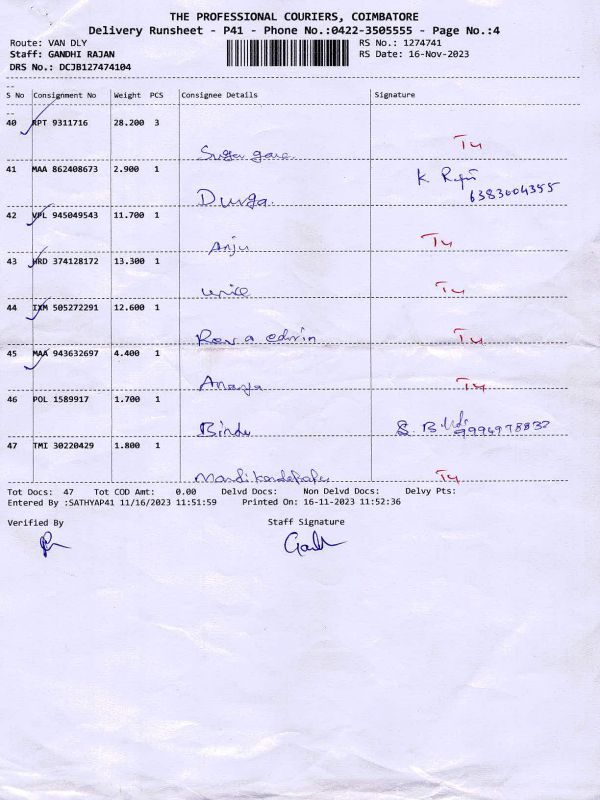 THE PROFESSIONAL COURIERS, COIMBATORE
Delivery Runsheet - P41 - Phone No.:0422-3505555 - Page No.:4
Route: VAN DLY RS No.: 1274741
Staff: GANDHI RAJAN RS Date: 16-Nov-2023
DRS No.: DCJB127474104
S No Consignment No Weight PCS Consignee Details Signature
40 RPT 9311716 28.200 3
41 MAA 862408673 2.900 1 K
Durga. 6383004355
42 VPL 945049543 11.700 1
Anju
43 HRD 374128172 13.300 1
44 IXM 505272291 12.600 1
edwin
45 MAA 943632697 4.400 1
46 POL 1589917 1.700 1
Bindu S. 9994978832
47 TMI 30220429 1.800 1
Tot Docs: 47 Tot COD Amt: 0.00 Delvd Docs: Non Delvd Docs: Delvy Pts:
Entered By :SATHYAP41 11/16/2023 11:51:59 Printed On: 16-11-2023 11:52:36
Verified By Staff Signature